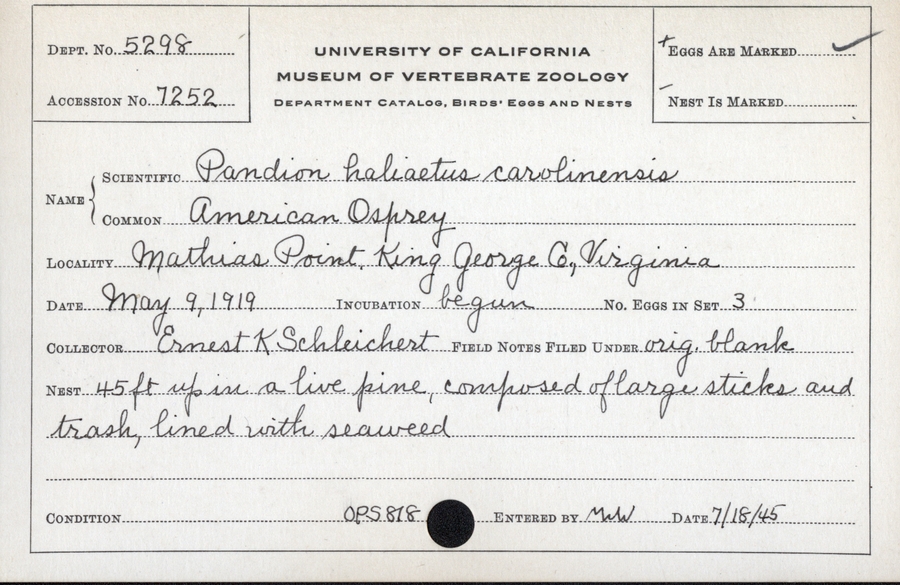 DEPT. NO. 5298
ACCESSION NO. 7252
UNIVERSITY OF CALIFORNIA
MUSEUM OF VERTEBRATE ZOOLOGY
DEPARTMENT CATALOG, BIRDS' EGGS AND NESTS
+ EGGS ARE MARKED ✓
- NEST IS MARKED
NAME { SCIENTIFIC Pandion haliaetus carolinensis
COMMON American Osprey
LOCALITY Mathias Point, King George Co, Virginia
DATE May 9, 1919 INCUBATION begun NO. EGGS IN SET 3
COLLECTOR Ernest K. Schleichert FIELD NOTES FILED UNDER orig. blank
NEST 45 ft up in a live pine, composed of large sticks and
trash, lined with seaweed
CONDITION OPS 818 ENTERED BY DATE 7/18/45